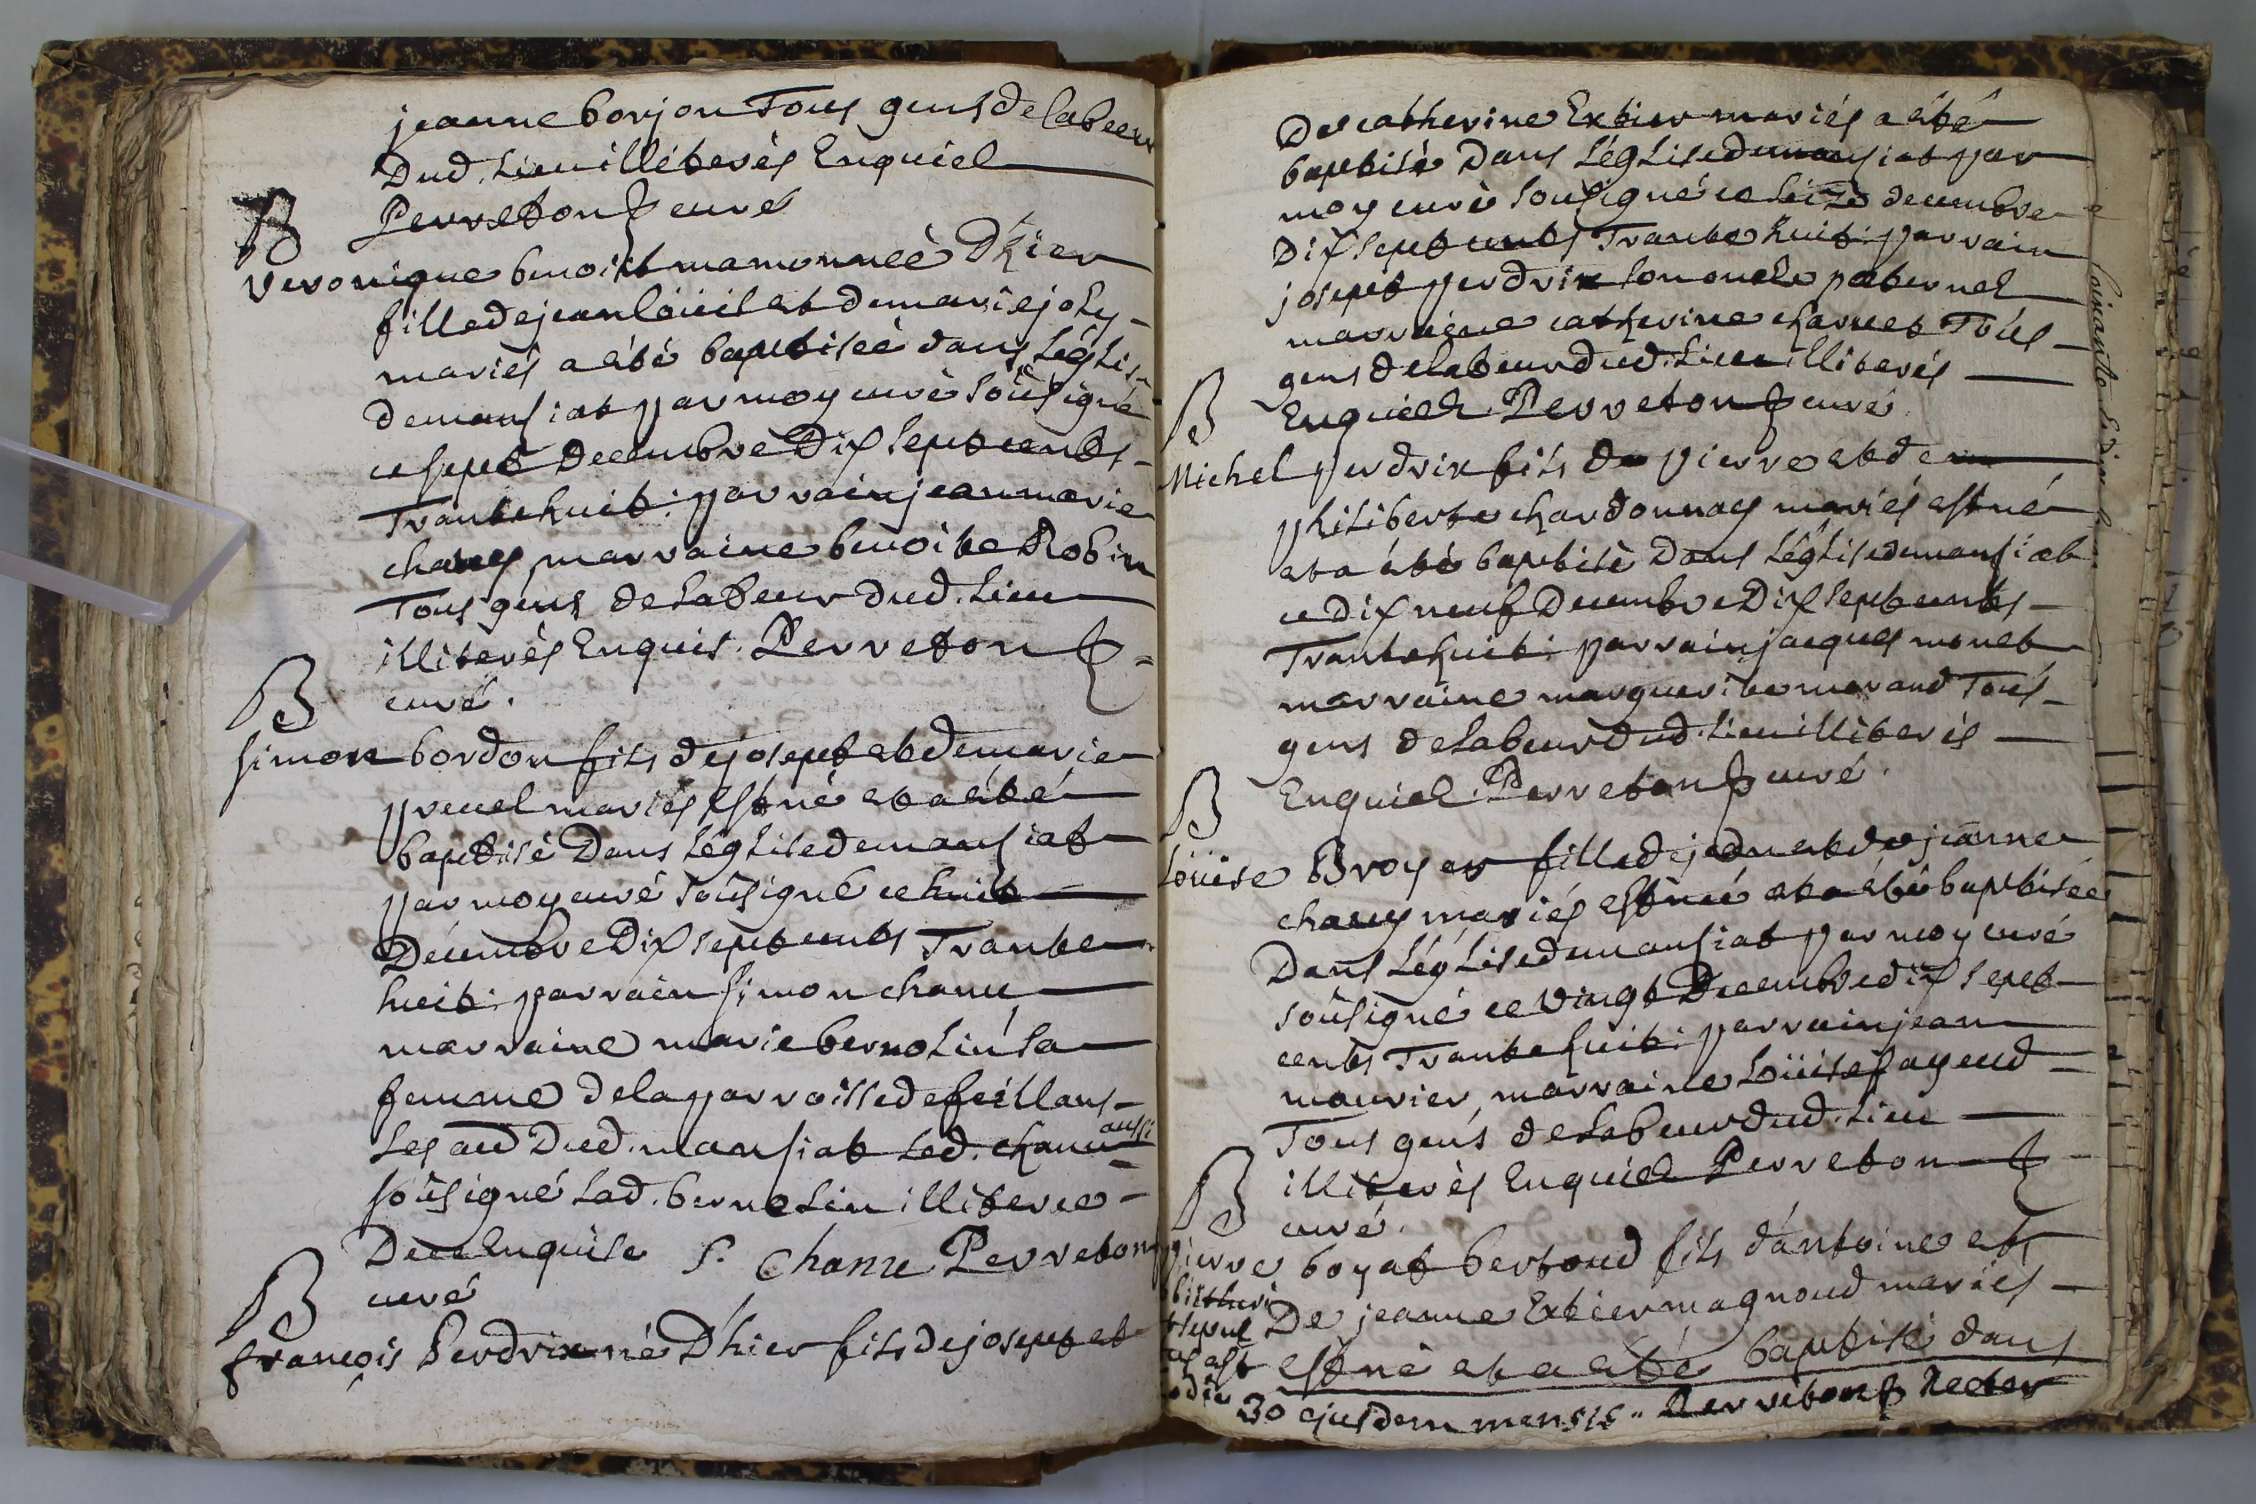 jeanne borjon Tous gens de labeeur
Dud. lieu illéterés Enquiel
Perreton curé
B
Veronique benoist mamonneè D'hier
fille de jean loüis et de marie joly
mariés a été baptiseé dans léglise
de mansiat par moy curé soûsigné
ce sept Decembre Dix sept cents
Trante huit : parrain jean marie
chanes, marraine benoite Robin
Tous gens de labeur dud. lieu
illiterés Enquis. Perreton
curé.
B
Simon bordon fils de josept et de marie
preuel mariés Est né et a été
baptisé Dans léglise de mansiat
par moy curé soûsigné ce huit
Décembre Dix sept cents Trante
huit : parrain simon chanu
marraine marie bernolin sa
femme de la parroisse de feillans
Les aud Dud. mansiat led. chanu aussi
soûsigné lad. bernolin illiteree
De ce Enquise S. Chanu Perreton
curé
B
françois Perdrix né D'hier fils de josept et
De catherine Extier mariés a été
baptisé Dans léglise de mansiat par
moy curé soûsigné ce seize decembre
Dix sept cents Trante huit : parrain
josept perdrix son oncle paternel
marraine catherine charnet Toûs
gens de labeur dud. lieu illiterés
Enquiels Perreton curé
B
Michel perdrix fils de pierre et de
philiberte chardonnay mariés est né
et a été baptisè Dans léglise de mansiat
ce dix neuf Decembre Dix sept cents
Trante huit : parrain jacques monet
marraine marguerite morand Toûs
gens de labeur dud. lieu illiterés
Enquiels Perreton curé.
B
Loüise Broyer fille de jean et de jeanne
chanes mariés est née et a été baptisée
Dans léglise de mansiat par moy curé
soûsigné ce vingt Decembre dix sept
cents Trante huit : parrain jean
mourier, marraine Loüise fayeud
Tous gens de labeur dud. lieu
illiterés Enquiels Perreton
curé.
B
pierre boyat bertoud fils d'antoine et
De jeanne Extier magnoud mariés
est né et a été baptisé dans
30 ejusdem mensis.. Perreton Rector